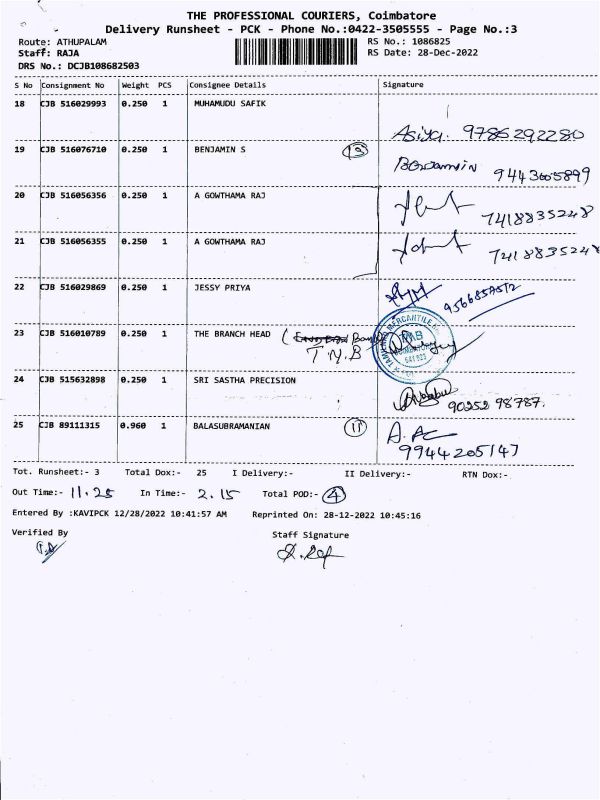 THE PROFESSIONAL COURIERS, Coimbatore
Delivery Runsheet - PCK - Phone No.:0422-3505555 - Page No.:3
Route: ATHUPALAM RS No.: 1086825
Staff: RAJA RS Date: 28-Dec-2022
DRS No.: DCJB108682503
S No Consignment No Weight PCS Consignee Details Signature
18 CJB 516029993 0.250 1 MUHAMUDU SAFIK
Asiya. 9786292280
19 CJB 516076710 0.250 1 BENJAMIN S
Benjamin 9443605899
20 CJB 516056356 0.250 1 A GOWTHAMA RAJ
7418835248
21 CJB 516056355 0.250 1 A GOWTHAMA RAJ
7418835248
22 CJB 516029869 0.250 1 JESSY PRIYA
23 CJB 516010789 0.250 1 THE BRANCH HEAD
T.M.B
641 023
24 CJB 515632898 0.250 1 SRI SASTHA PRECISION
90252 98787.
25 CJB 89111315 0.960 1 BALASUBRAMANIAN 11
9944205147
Tot. Runsheet:- 3 Total Dox:- 25 I Delivery:- II Delivery:- RTN Dox:-
Out Time:- 11.25 In Time:- 2.15 Total POD:- 4
Entered By :KAVIPCK 12/28/2022 10:41:57 AM Reprinted On: 28-12-2022 10:45:16
Verified By Staff Signature